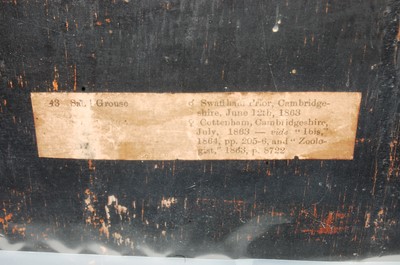 43 Sa.. Grouse ♂ Swaffham Prior, Cambridge-
shire, June 12th, 1863
♀ Cottenham, Cambridgeshire,
July, 1863 — vide "Ibis,"
1864, pp. 295-6, and "Zoolo-
gist," 1863, p. 8722